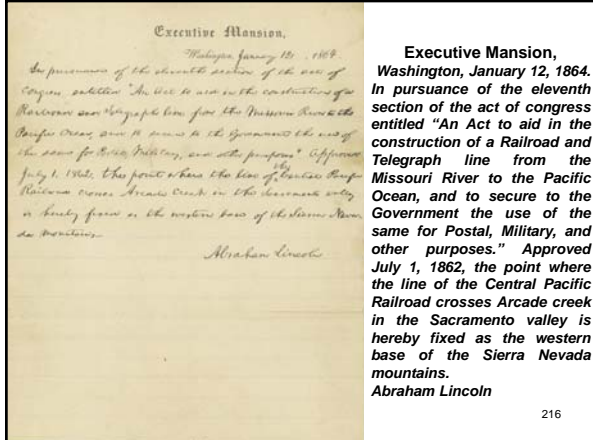 Executive Mansion,
Washington, January 12, 1864.
In pursuance of the eleventh section of the act of
Congress entitled "An Act to aid in the construction of a
Railroad and Telegraph line from the Missouri River to the
Pacific Ocean, and to secure to the Government the use of
the same for Postal, Military, and other purposes" Approved
July 1, 1862, the point where the line of the Central Pacific
Railroad crosses Arcade Creek in the Sacramento valley
is hereby fixed as the western base of the Sierra Neva-
da mountains.
Abraham Lincoln
Executive Mansion,
Washington, January 12, 1864.
In pursuance of the eleventh
section of the act of congress
entitled “An Act to aid in the
construction of a Railroad and
Telegraph line from the
Missouri River to the Pacific
Ocean, and to secure to the
Government the use of the
same for Postal, Military, and
other purposes.” Approved
July 1, 1862, the point where
the line of the Central Pacific
Railroad crosses Arcade creek
in the Sacramento valley is
hereby fixed as the western
base of the Sierra Nevada
mountains.
Abraham Lincoln
216